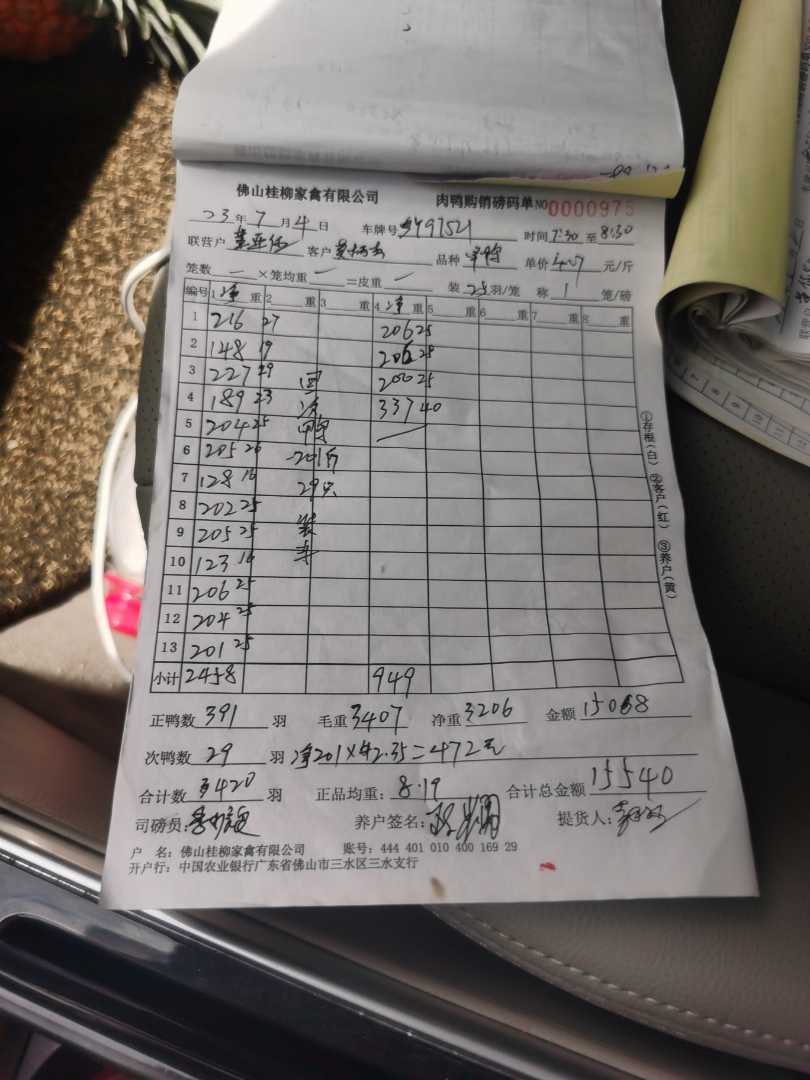 佛山桂柳家禽有限公司 肉鸭购销磅码单 NO 0000975
23年7月4日 车牌号 49752 时间 7:30 至 8:30
联营户 客户 品种 单价 4.7 元/斤
笼数 — ×笼均重 — =皮重 — 装 25 羽/笼 称 1 笼/磅
编号 1 净 重 2 重 3 重 4 净 重 5 重 6 重 7 重 8 重
1 216 27 206 25
2 148 19 206 25
3 227 29 200 25
4 189 23 次 337 40
5 204 25 鸭
6 205 26 201斤
7 128 16 29只
8 202 25 装
9 205 25 车
10 123 16
11 206 25
12 204 25
13 201 25
小计 2458 949
正鸭数 391 羽 毛重 3407 净重 3206 金额 15068
次鸭数 29 羽 净201×2.35=472元
合计数 420 羽 正品均重: 8.19 合计总金额 15540
司磅员: 养户签名: 提货人:
户 名: 佛山桂柳家禽有限公司 账号: 444 401 010 400 169 29
开户行: 中国农业银行广东省佛山市三水区三水支行
①存根(白) ②客户(红) ③养户(黄)